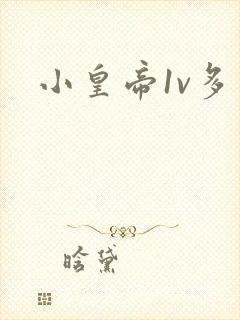 小皇帝1v多
晗黛